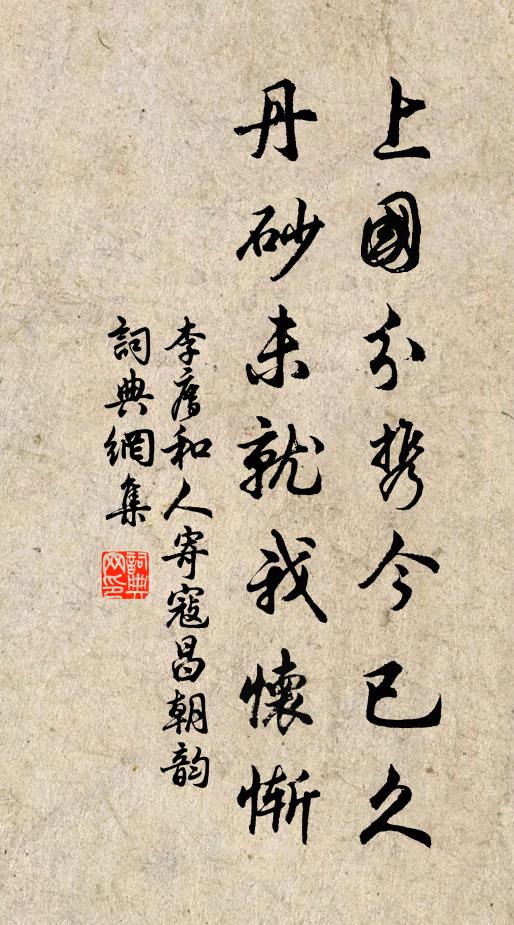 上國分携今已久
丹砂未就我懷慚
李廌和人寄寇昌朝韵
詞典網集
詞典网印